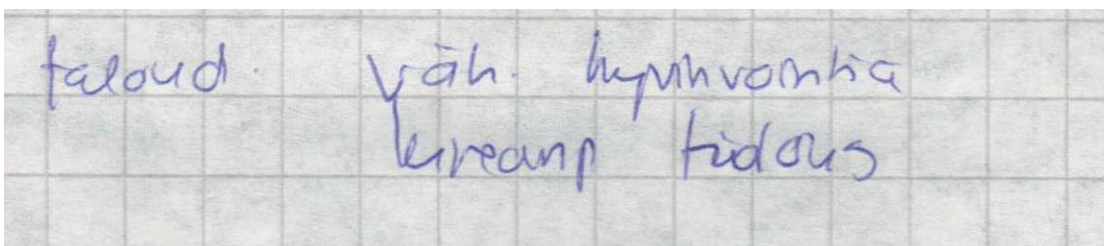 taloud. väh. hyvinvointia
kireämp tiedotus